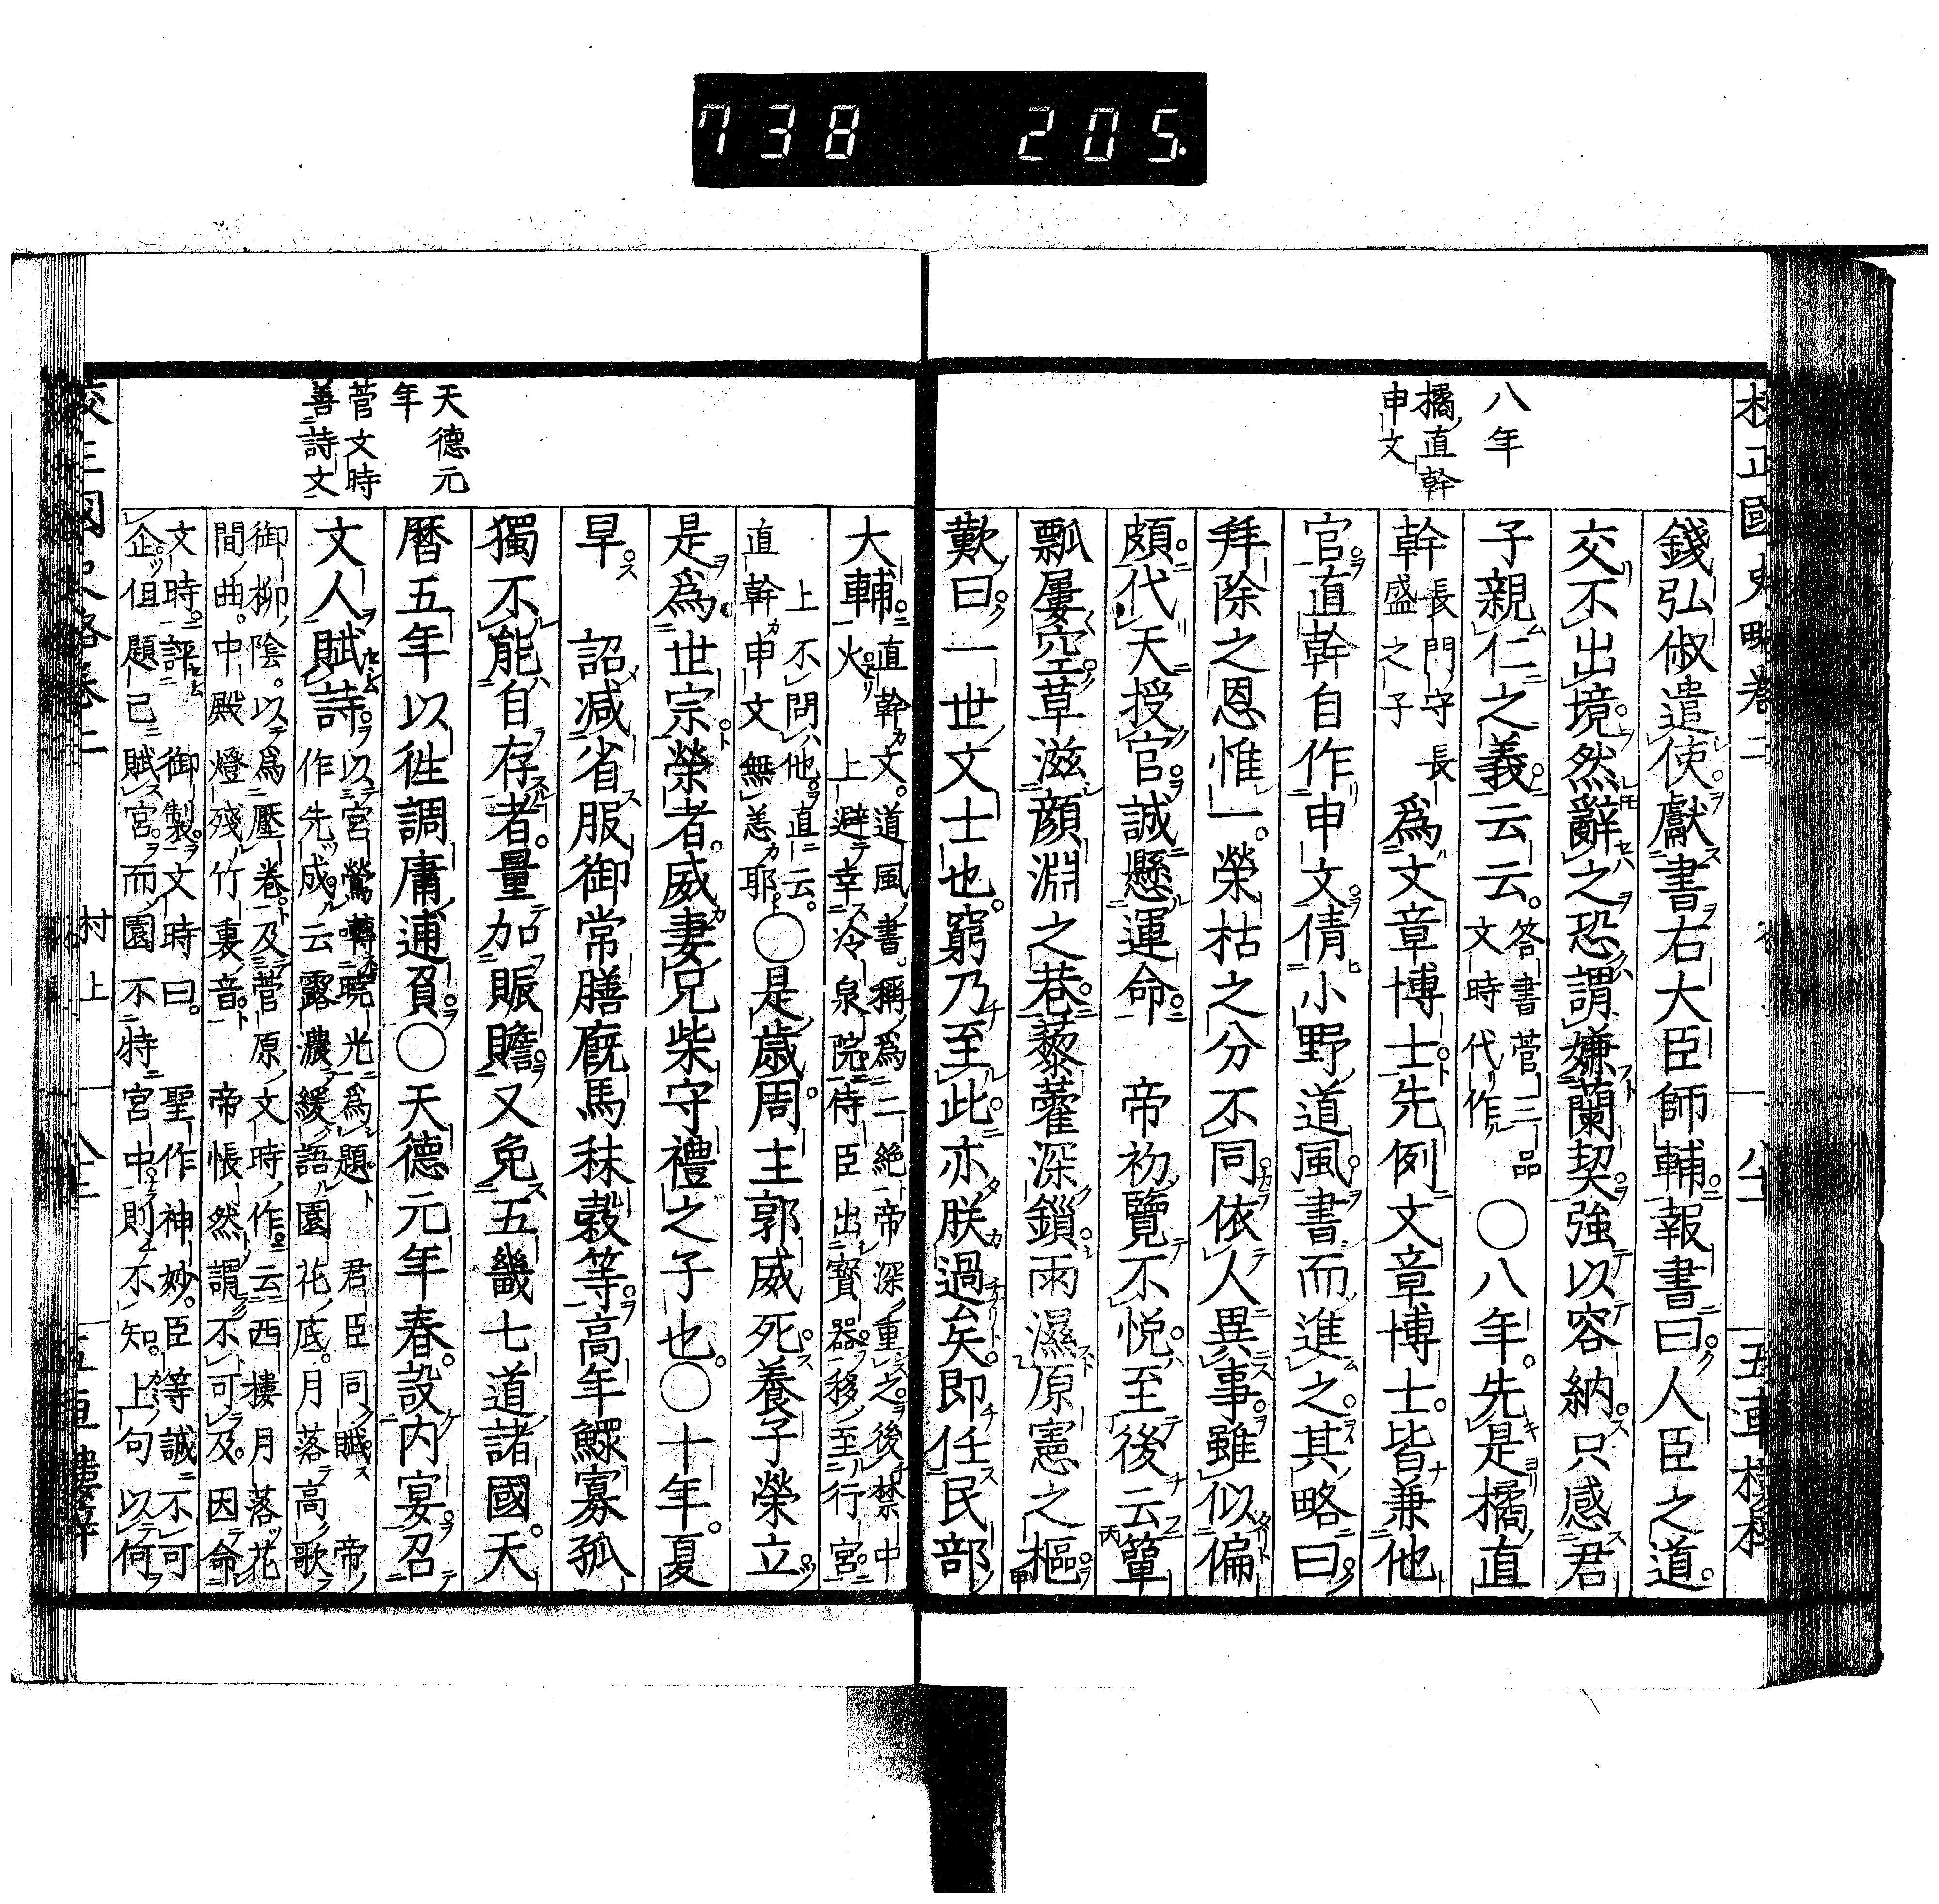 738 205.
八年
橘直幹
申文
錢弘俶遣使獻書右大臣師輔報書曰人臣之道
交不出境然辭之恐謂嫌蘭契強以容納只感君
子親仁之義云云答書菅三品文時代作〇八年先是橘直
幹長門守長盛之子爲文章博士先例文章博士皆兼他
官直幹自作申文倩小野道風書而進之其略曰
拜除之恩惟一榮枯之分不同依人異事雖似偏
頗代天授官誠懸運命　帝初覽不悅至後云簞
瓢屢空草滋顏淵之巷藜藿深鎖雨濕原憲之樞
歎曰一世文士也窮乃至此亦朕過矣即任民部
大輔直幹文道風書稱爲二絕帝深重之後禁中火　上避幸冷泉院侍臣出寶器移至行宮
上不問他直云直幹申文無恙耶〇是歲周主郭威死養子榮立
是爲世宗榮者威妻兄柴守禮之子也〇十年夏
旱　詔減省服御常膳廐馬秣穀等高年鰥寡孤
獨不能自存者量加賑贍又免五畿七道諸國天
曆五年以徃調庸逋負〇天德元年春設内宴召
文人賦詩以宮鶯囀曉光爲題　君臣同賦　帝作先成云露濃緩語園花底月落高歌
御柳陰以爲壓卷及菅原文時作云西樓月落花間曲中殿燈殘竹裏音　帝悵然謂不可及因命
文時評　御製文時曰　聖作神妙臣等誠不可企但題已賦宮而園不特宮中則不知上句以何
天德元
年
菅文時
善詩文
村上